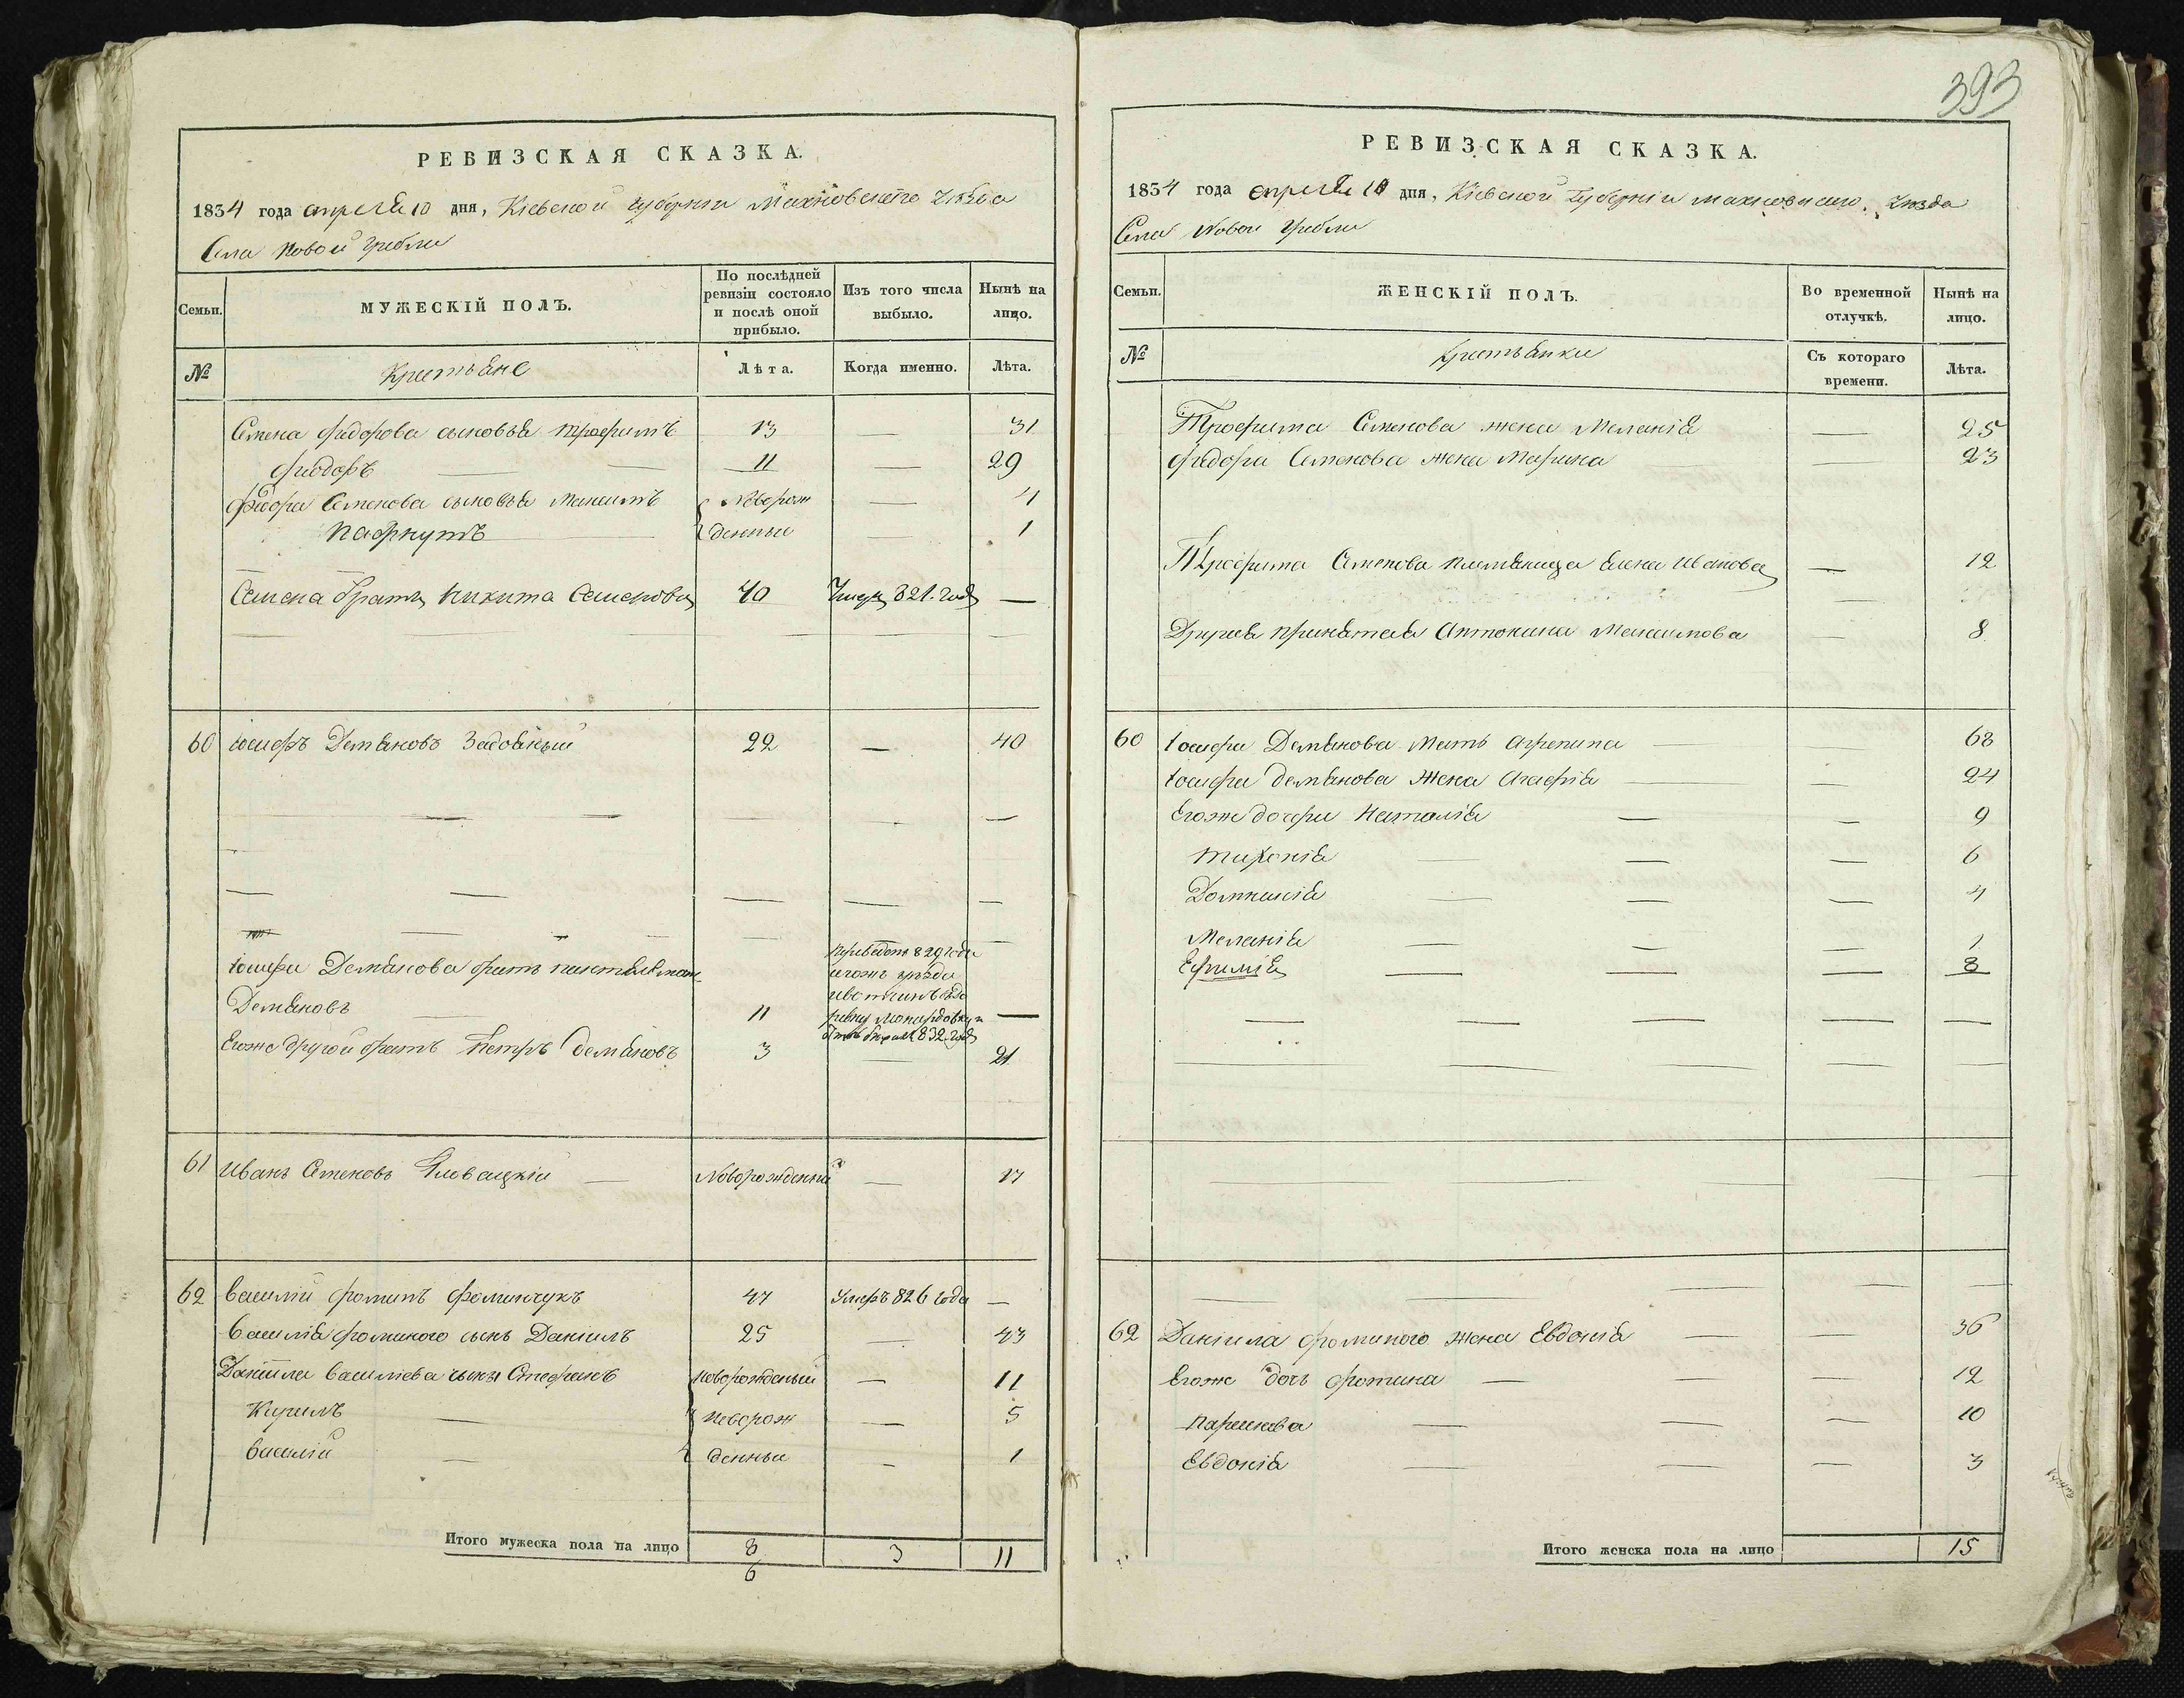 РЕВИЗСКАЯ СКАЗКА.
1834 года апреля 10 дня, Кіевской губерніи Махновскаго уѣзда
Села Новой Гребли
Семьи.
МУЖЕСКІЙ ПОЛЪ.
По послѣдней ревизіи состояло и послѣ оной прибыло.
Изъ того числа выбыло.
Нынѣ на лицо.
№
Крестьяне
Лѣта.
Когда именно.
Лѣта.
Семена Федорова сыновья Трофимъ 13 — 31
Фіодоръ — — 11 — 29
Фіодора Семенова сыновья Максимъ новорож — 4
Пафнутъ — денные — 1
Семена братъ Никита Семеновъ 40 Умеръ 821. года —
60 Іосифъ Демяновъ 22 — 40
Іосифа Демянова братъ
Демяновъ — 11
Переведенъ 829 года
832 года —
Егоже другой братъ Петръ Демяновъ 3 — 21
61 Иванъ Семеновъ — Новорожденный — 17
62 Василій Фоминъ Фоминчукъ 47 Умеръ 826 года —
Василія Фоминого сынъ Даніилъ 25 — 43
Даніила Васильева сынъ Стефанъ новорожденый — 11
Кирилъ — новорож — 5
Василій — денные — 1
Итого мужеска пола на лицо 8 3 11
6
393
РЕВИЗСКАЯ СКАЗКА.
1834 года апреля 10 дня, Кіевской Губерніи Махновскаго Уѣзда
Села Новой Гребли
Семьи.
ЖЕНСКІЙ ПОЛЪ.
Во временной отлучкѣ.
Нынѣ на лицо.
№
Крестьянки
Съ котораго времени.
Лѣта.
Трофима Семенова жена Меланія — 25
Фіодора Семенова жена Марина — 23
Трофима Семенова племяница Елена Иванова — 12
Другая принятая Антонина Максимова — 8
60 Іосифа Демянова мать Агрепина — 68
Іосифа Демянова жена Агафія — — 24
Егоже дочери Наталія — — 9
— — — 6
Домникія — — — 4
Меланія — — — 1
Ефимія — — — 8
62 Даніила Фоминого жена Евдокія — — 36
Егоже дочь Фотина — — — 12
Параскева — — — 10
Евдокія — — — 3
Итого женска пола на лицо 15